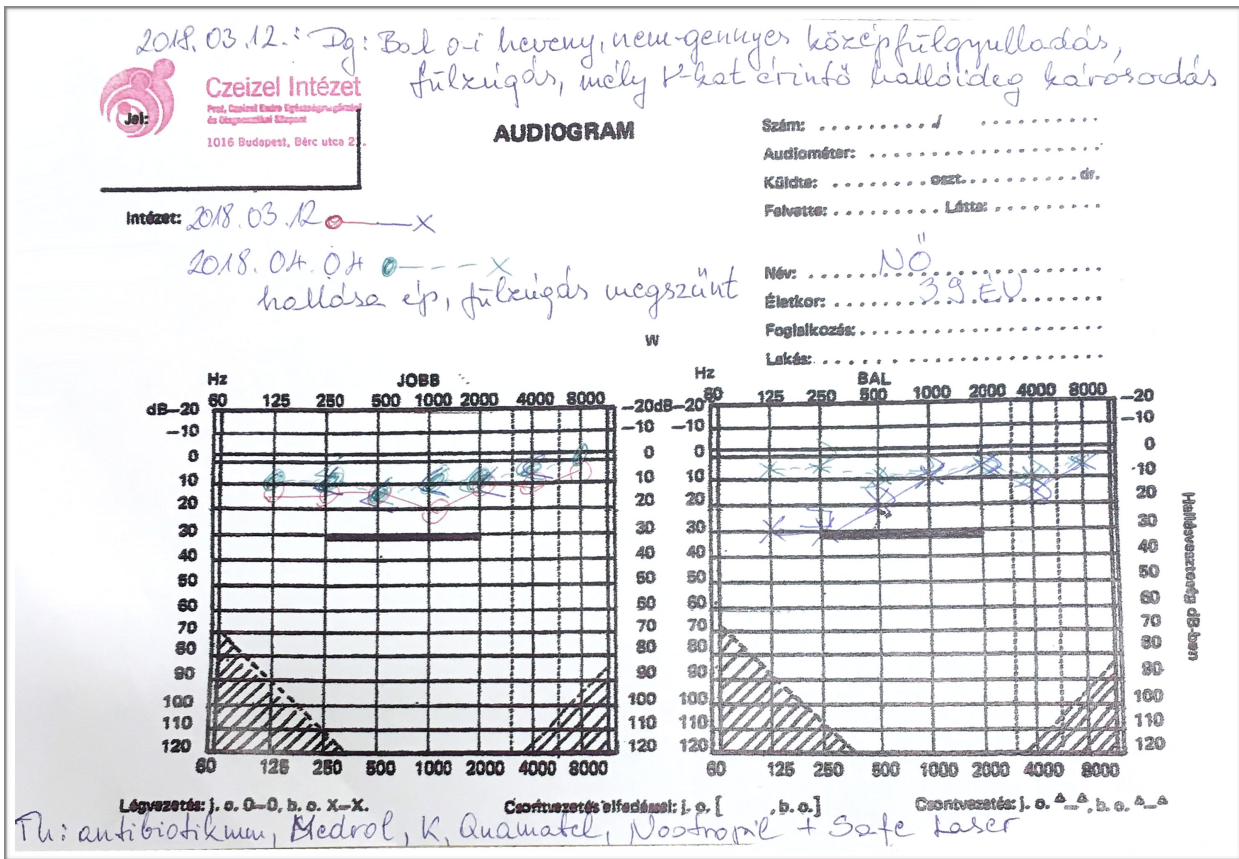 2018.03.12.: Dg: Bal o-i heveny, nem-gennyes középfülgyulladás,
fülzúgás, mély f-kat érintő hallóideg károsodás
Czeizel Intézet
Prof. Czeizel Endre Egészségmegőrzési
és Diagnosztikai Központ
1016 Budapest, Bérc utca 23.
Jel:
AUDIOGRAM
Szám:
Audiométer:
Küldte: oszt. dr.
Felvette: Látta:
Intézet: 2018.03.12 o—X
2018.04.04 o---X
hallása ép, fülzúgás megszűnt
Név: NŐ
Életkor: 39 ÉV
Foglalkozás:
Lakás:
W
Hz JOBB
60 125 250 500 1000 2000 4000 8000
dB–20 –20
–10 –10
0 0
10 10
20 20
30 30
40 40
50 50
60 60
70 70
80 80
90 90
100 100
110 110
120 120
60 125 250 500 1000 2000 4000 8000
Hz BAL
60 125 250 500 1000 2000 4000 8000
dB–20 –20
–10 –10
0 0
10 10
20 20
30 30
40 40
50 50
60 60
70 70
80 80
90 90
100 100
110 110
120 120
60 125 250 500 1000 2000 4000 8000
Hallásveszteség dB-ben
Légvezetés: j. o. O–O, b. o. X–X. Csontvezetés elfedéssel: j. o. [ , b. o. ] Csontvezetés: j. o. △–△, b. o. △–△
Th: antibiotikum, Medrol, K, Quamatel, Nootropil + Safe Laser